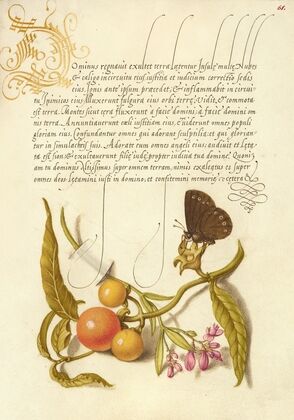 61.
Dominus regnauit exultet terra, laetentur Insulę multę. Nubes
& caligo in circuitu eius, iustitia et iudicium correctio sedis
eius. Ignis ante ipsum praecedet, & inflammabit in circui-
tu Inimicos eius. Illuxerunt fulgura eius orbi terrę. Vidit, & commota
est terra. Montes sicut cera fluxerunt a facie domini, a facie domini om
nis terra. Annuntiauerunt caeli iustitiam eius, et uiderunt omnes populi
gloriam eius. Confundantur omnes qui adorant sculptilia, et qui glorian-
tur in simulachris suis. Adorate eum omnes angeli eius: audiuit et laeta-
ta est sion & exultauerunt filię iudę, propter iudicia tua domine. Quoni
am tu dominus Altissimus super omnem terram, nimis exaltatus es super
omnes deos. Laetamini iusti in domino, et confitemini memorię & cetera